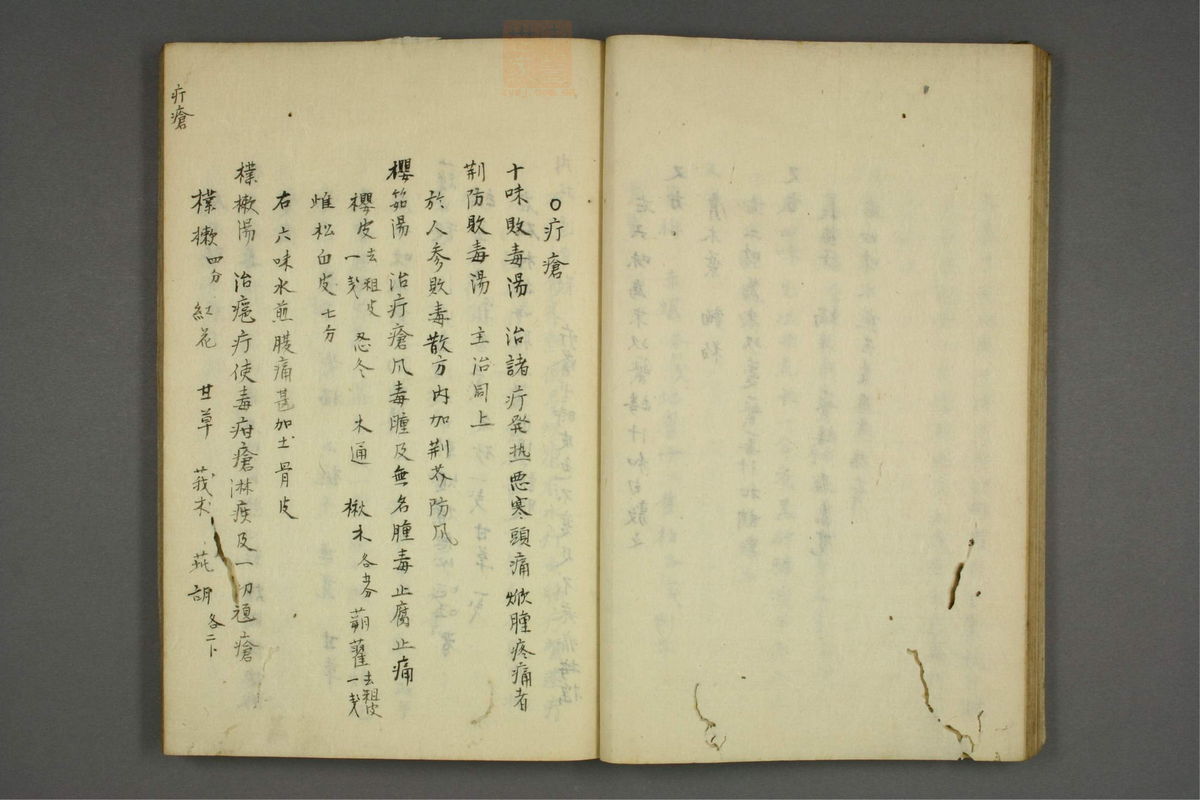 ○疔瘡
十味敗毒湯 治諸疔発热悪寒頭痛焮腫疼痛者
荆防敗毒湯 主治同上
於人参敗毒散方内加荆芥防風
櫻筎湯治疔瘡风毒腫及無名腫毒止腐止痛
櫻皮去粗皮一戔 忍冬 木通 楸木各 蒴藋去粗皮一戔
雄松白皮七分
右六味水煎服痛甚加土骨皮
樸樕湯 治瘑疔使毒疳瘡淋疾及一切頑瘡
樸樕四分 紅花 甘草 莪朮 茈胡各二卜
疔瘡